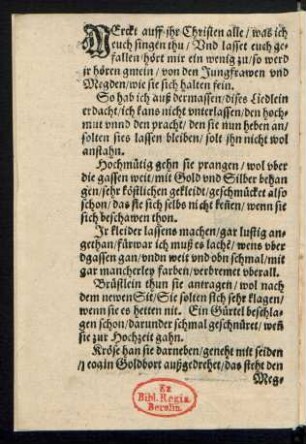 MErckt auff ihr Christen alle / was ich
euch singen thu / Vnd lasset euch ge-
fallen / hört mir ein wenig zu / so werd
jr hören gmein / von den Jungfrawen vnd
Megden / wie sie sich halten fein.
So hab ich auß dermassen / dises Liedlein
erdacht / ich kans nicht vnterlassen / den hoch-
mut vnnd den pracht / den sie nun heben an /
solten sies lassen bleiben / solt jhn nicht wol
anstahn.
Hochmütig gehn sie prangen / wol vber
die gassen weit / mit Gold vnd Silber behan
gen / sehr köstlichen gekleidt / geschmücket also
schon / das sie sich selbs nicht keñen / wenn sie
sich beschawen thon.
Ir kleider lassens machen / gar lustig an-
gethan / fürwar ich muß es lachẽ / wens vber
dgassen gan / vndn weit vnd obn schmal / mit
gar mancherley farben / verbremet vberall.
Brüstlein thun sie antragen / wol nach
dem newen Sit / Sie solten sich sehr klagen /
wenn sie es hetten nit. Ein Gürtel beschla-
gen schon / darunder schmal geschnüret / weñ
sie zur Hochzeit gahn.
Kröse han sie darneben / geneht mit seiden
Goldbort außgedrehet / das steht den
Meg-
Ex
Bibl. Regia
Berolin.